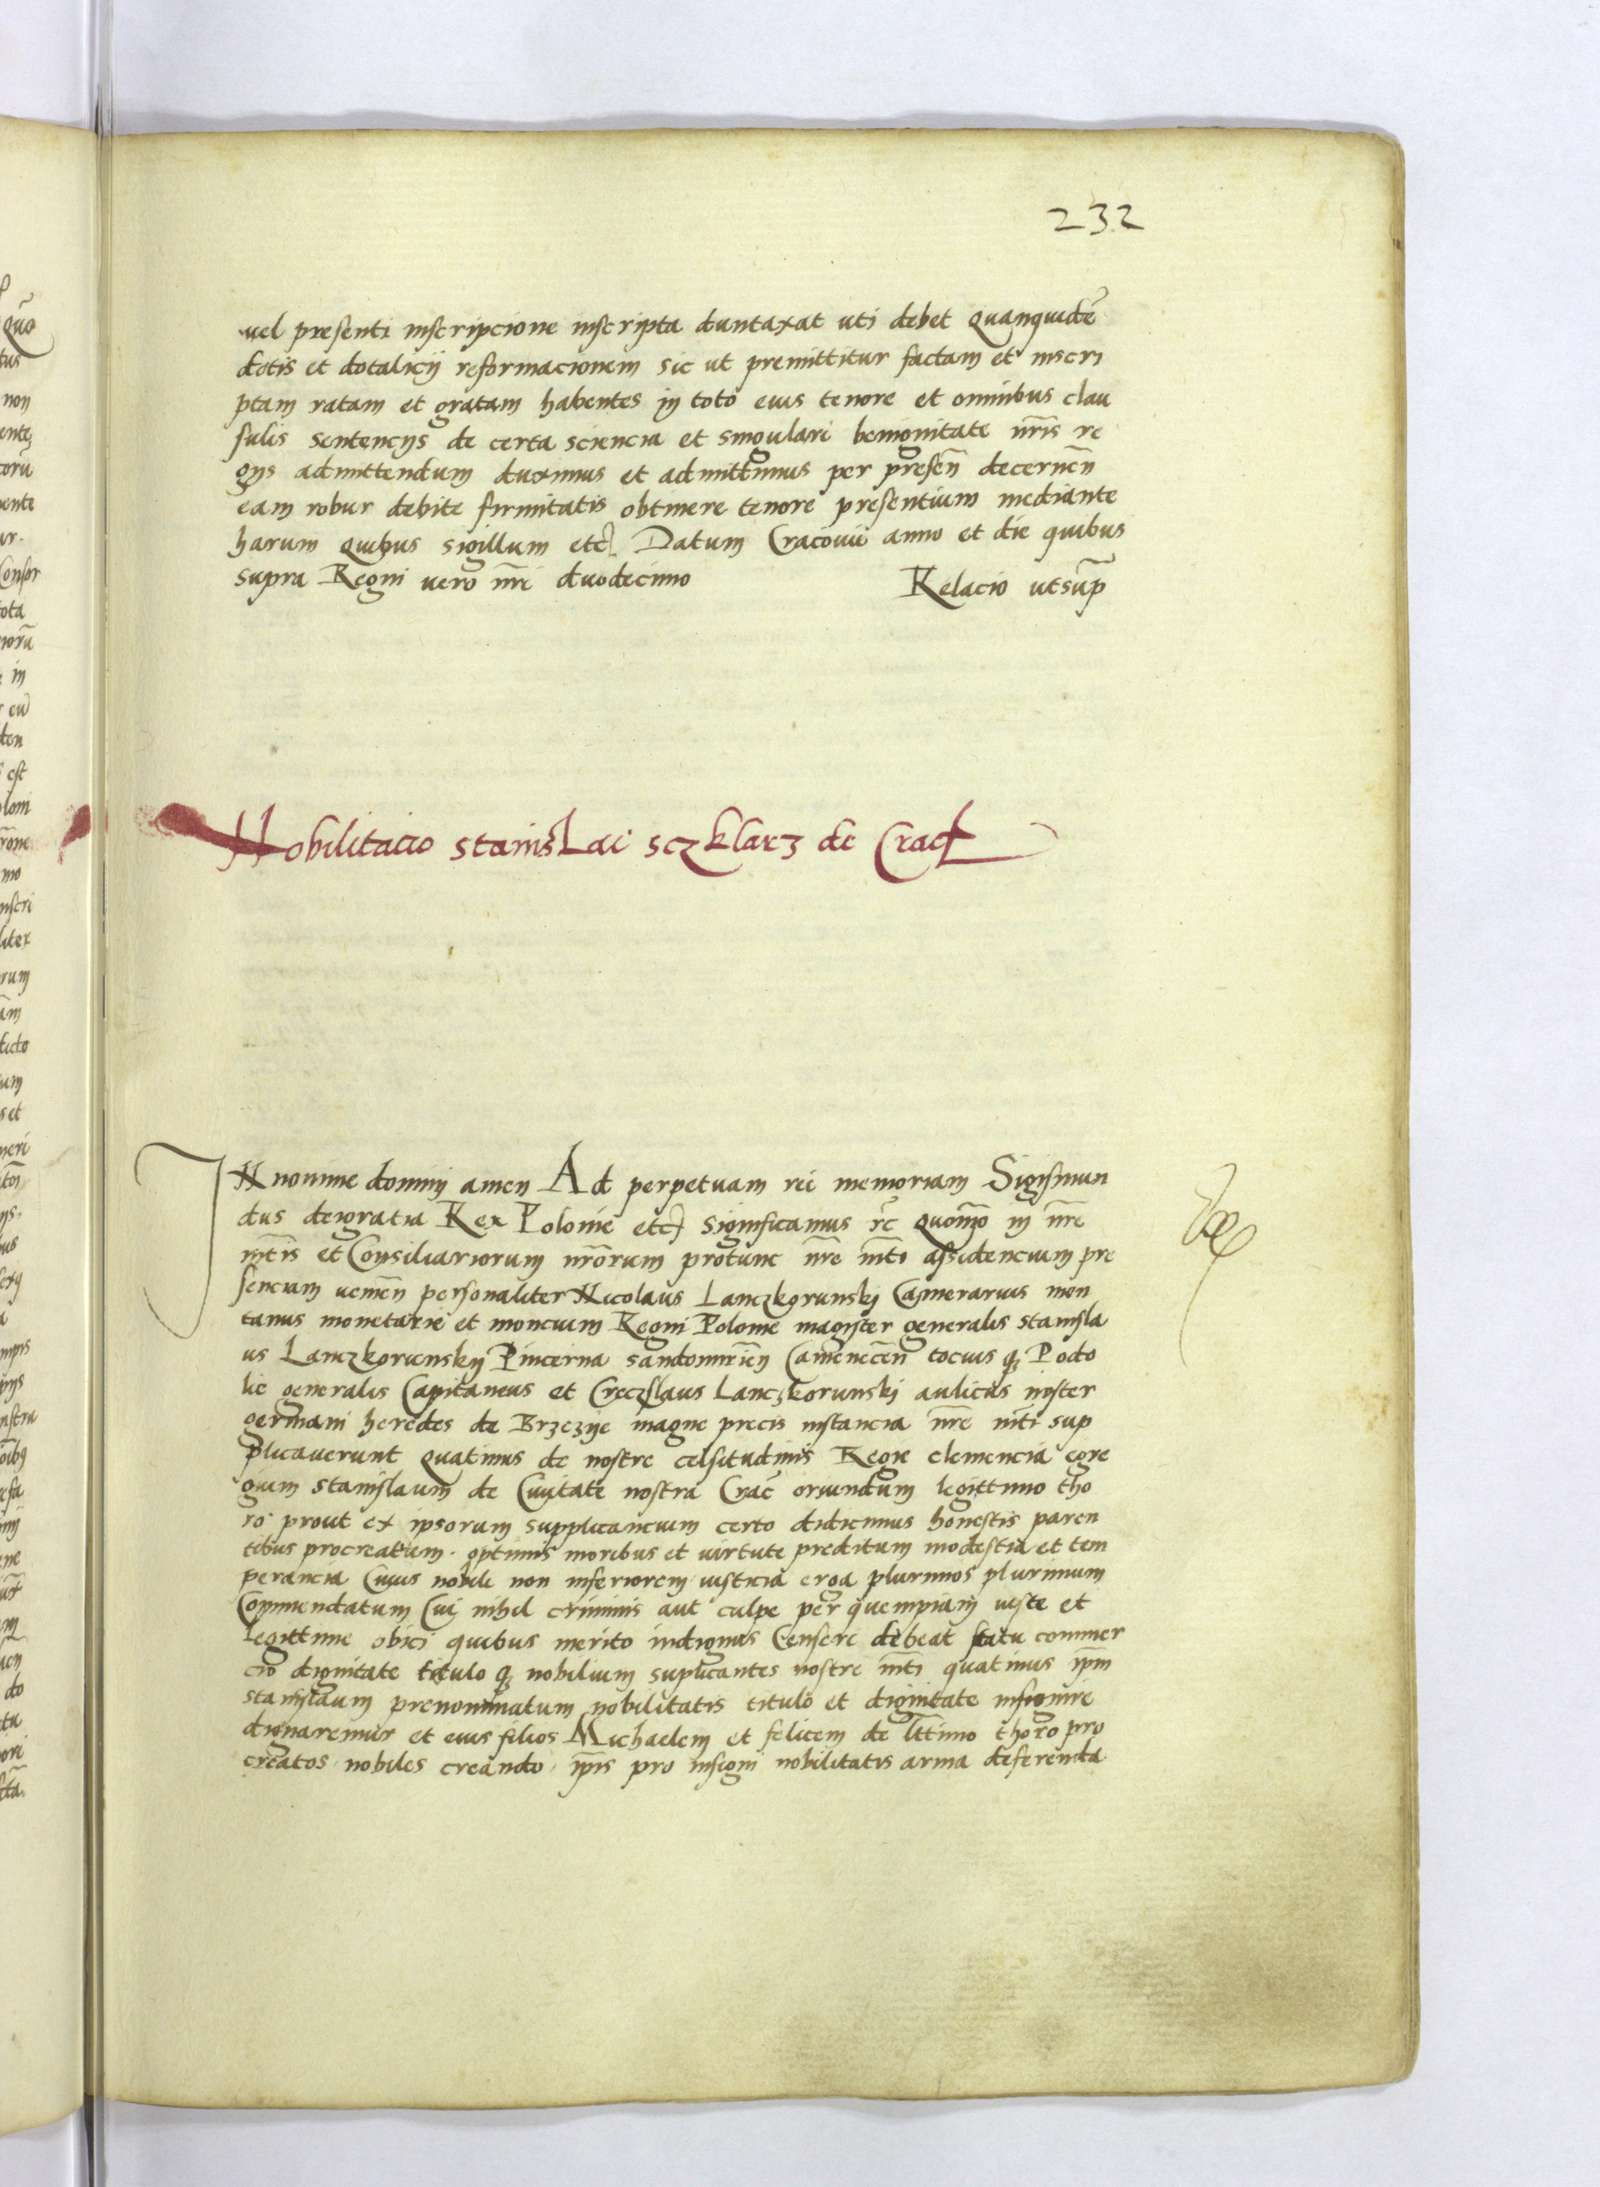 232
vel presenti inscripcione inscripta duntaxat uti debet Quanquidē
dotis et dotalicij reformacionem sic ut premittitur factam et inscri
ptam ratam et gratam habentes in toto eius tenore et omnibus clau
sulis sentencijs de certa sciencia et singulari benignitate nr̄is re
gijs admittendum duximus et admittimus per presen̄ decernen̄
eam robur debite firmitatis obtinere tenore presentium mediante
harum Quibus sigillum etc Datum Cracovie anno et die quibus
supra Regni vero nr̄i duodecimo Relacio utsup̄
Nobilitacio stanislai sczklarz de Crac
IN nomine domini amen Ad perpetuam rei memoriam Sigismun
dus deigratia Rex Polonie etc significamus rc̄ Quom̄o in nr̄e
mt̄is et Consiliariorum nr̄orum protunc nr̄e mt̄i assidencium pre
senciam venien̄ personaliter Nicolaus Lanczkorunskj Camerarius mon
tanus monetarie et moncium Regni Polonie magister generalis stanisla
us Lanczkorunskij Pincerna sandomirien̄ Camenecen̄ tocius q₃ Podo
lie generalis Capitaneus et Creczslaus Lanczkorunskj aulicus noster
germani heredes de Brzezije magne precis instancia nr̄e mt̄i sup
plicaverunt Quatinus de nostre celsitudinis Regie clemencia egre
gium stanislaum de Civitate nostra Crac̄ oriundum legittimo tho
ro prout ex ipsorum supplicancium certo didicimus honestis paren
tibus procreatum. optimis moribus et virtute preditum modestia et tem
perancia Cuius nobili non inferiorem iusticia erga plurimos plurimum
Commendatum Cuj nihil criminis aut culpe per quempiam iuste et
legittime obici quibus merito indignus Censeri debeat statu commer
cio dignitate titulo q₃ nobilium suplicantes nostre mt̄i quatinus ip̄m
stanislaum prenominatum nobilitatis titulo et dignitate insignire
dignaremur et eius filios Michaelem et felicem de lt̄timo thoro pro
creatos nobiles creando. ip̄is pro insigni nobilitatis arma deferenda